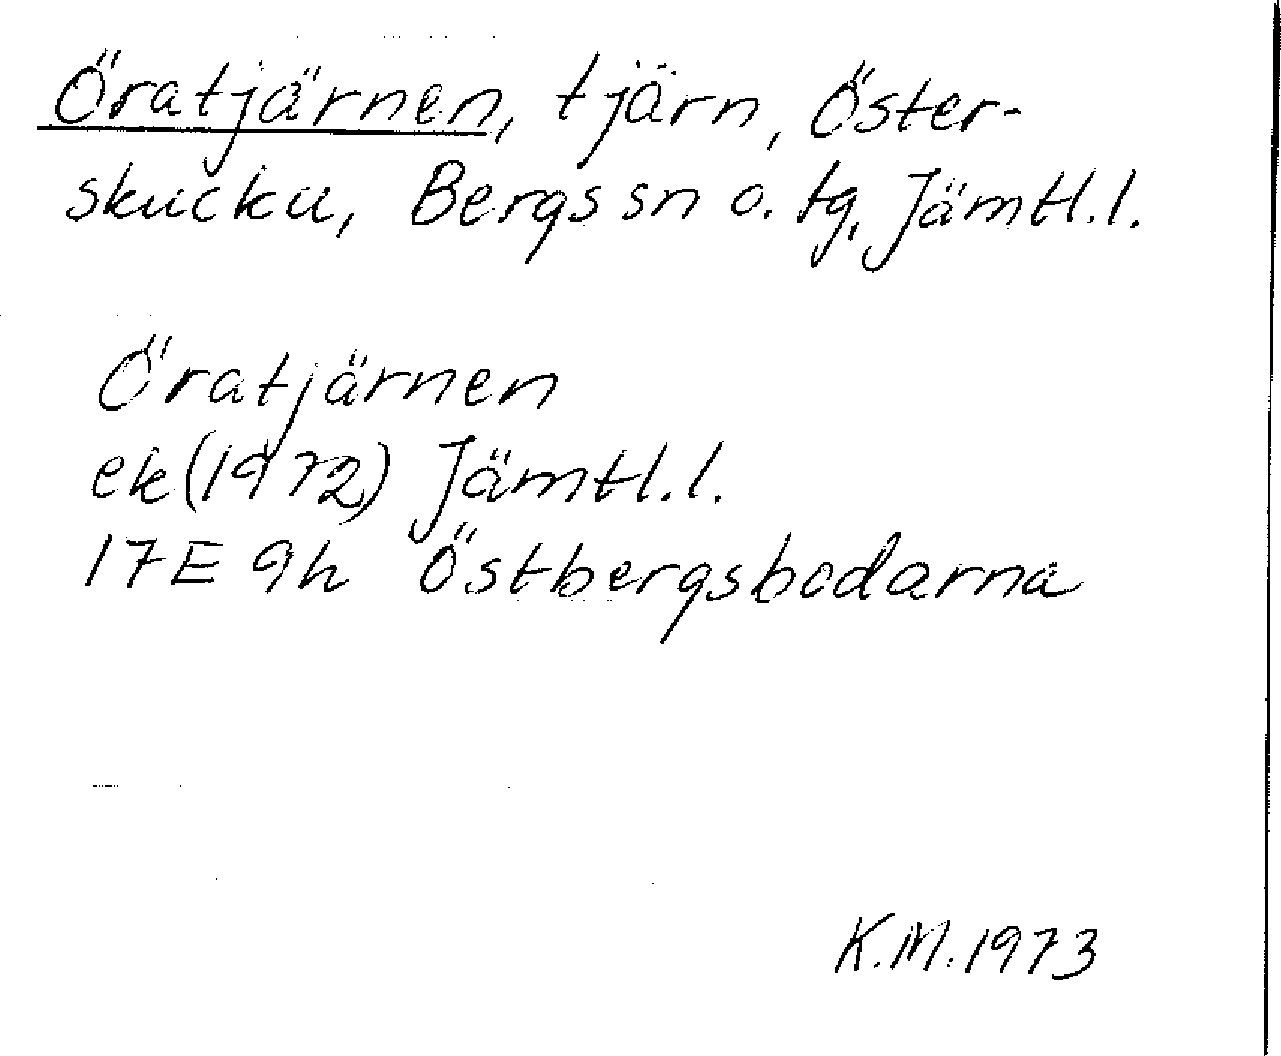 Öratjärnen, tjärn, Öster-
skucku, Bergs sn o. tg, Jämtl.l.
Öratjärnen
ek (1972) Jämtl.l.
17E 9h Östbergsbodarna
K.M. 1973